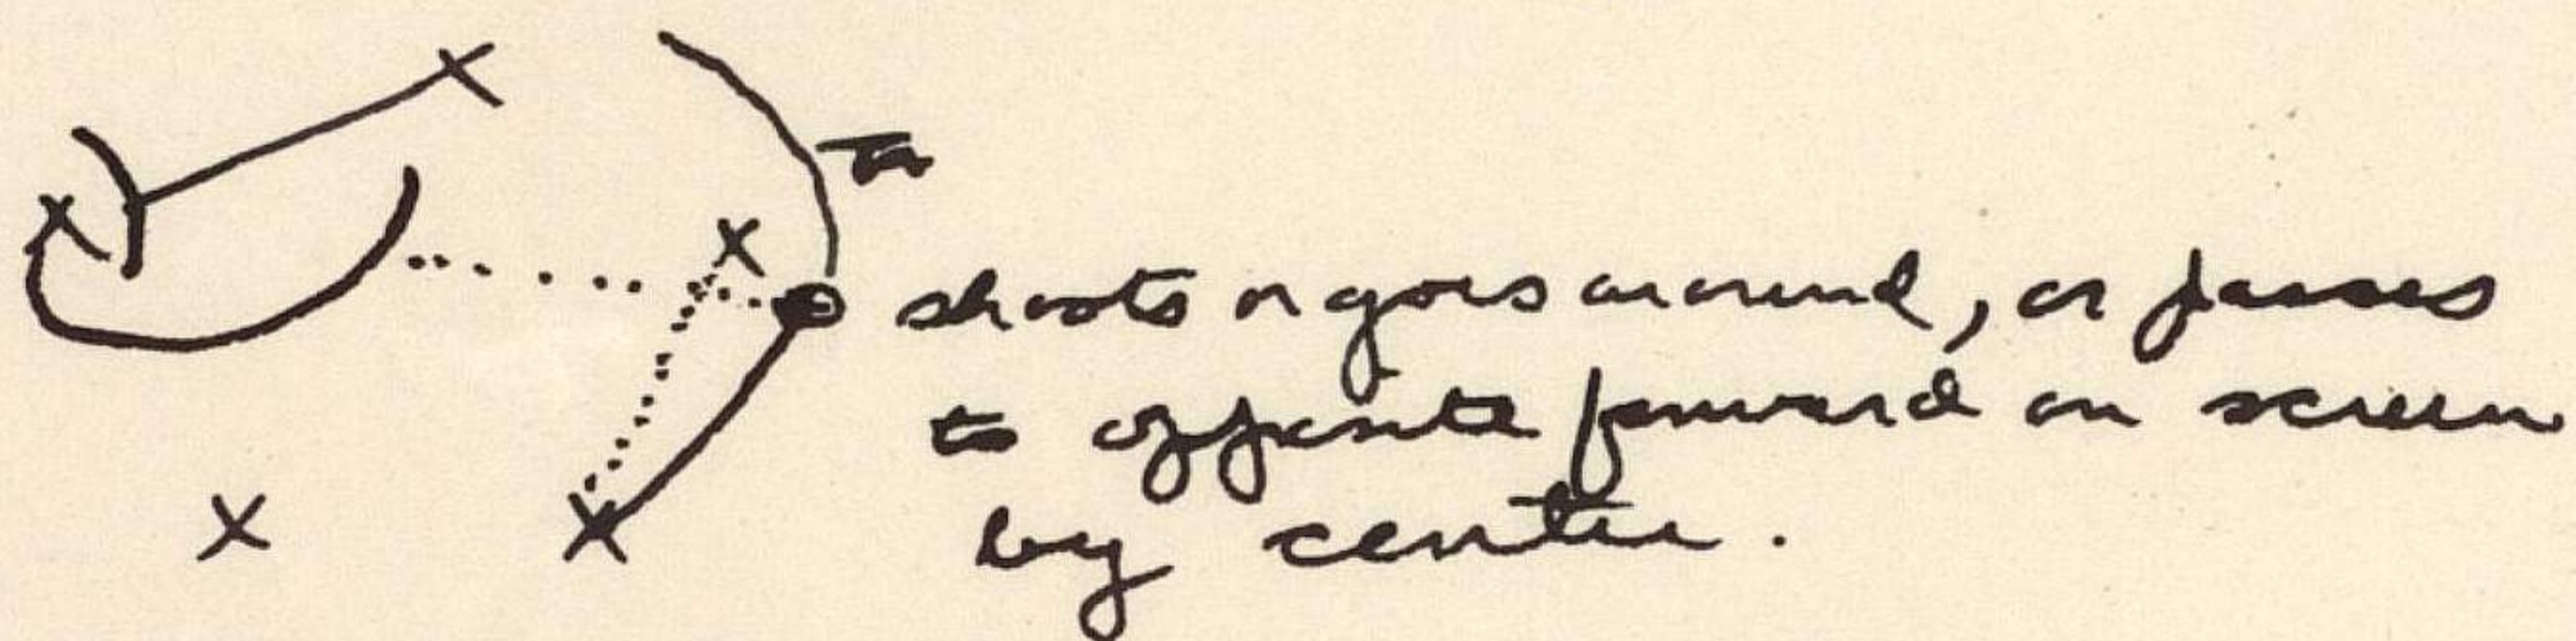 to
shoots or goes around, or passes
to opposite forward on screen
by center.